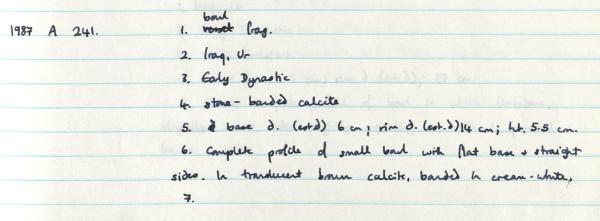 bowl
1987 A 241. 1. vessel frag.
2. Iraq, Ur
3. Early Dynastic
4. stone - banded calcite
5. base d. (estd) 6 cm; rim d. (est.d) 14 cm; ht. 5.5 cm.
6. Complete profile of small bowl with flat base & straight
sides. In translucent brown calcite, banded in cream-white,
7.